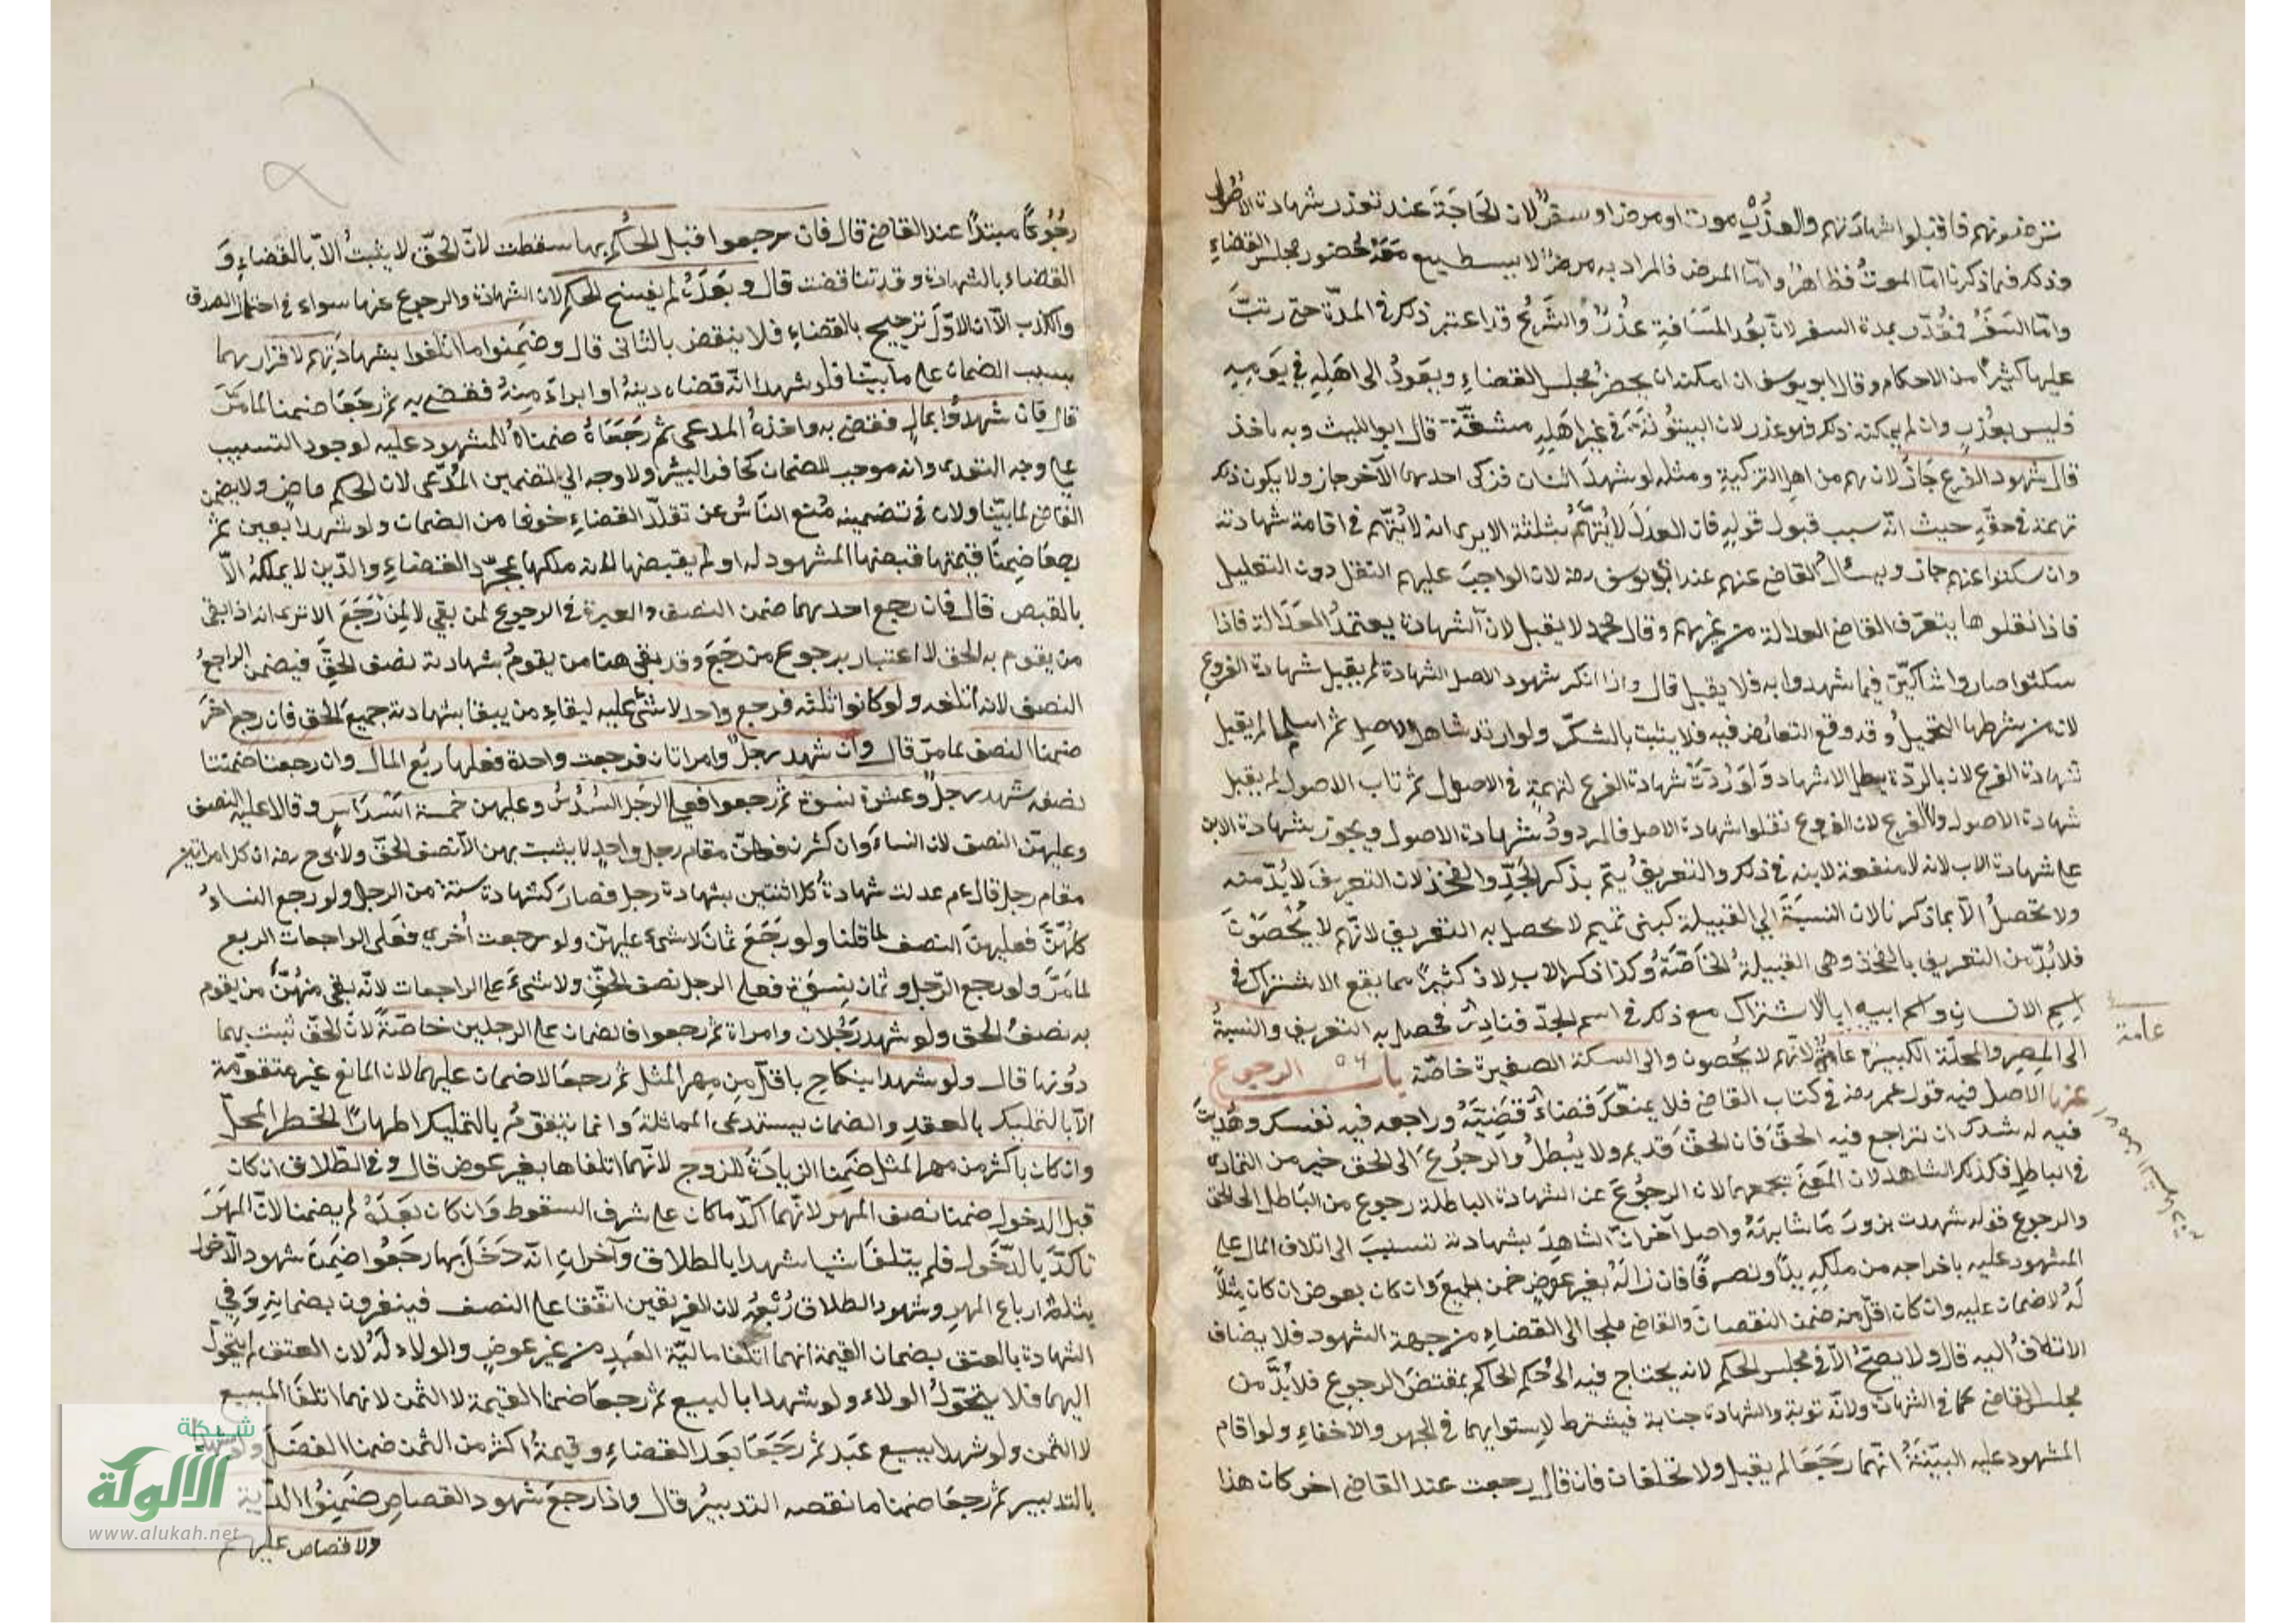 ترضونهم فاقبلوا شهادتهم والعذر موت او مرض او سفر لان الحاجة عند تعذر شهادة الاصول
وذلك فيما ذكرنا امّا الموت فظاهر وامّا المرض فالمراد به مرض لا يستطيع معه حضور مجلس القضاء
وامّا السفر فقُدّر بمدة السفر لانّ بعُد المسَافة عذر والشرع قد اعتبر ذلك في المدّة حتى رتبّ
عليها كثيرًا من الاحكام وقال ابو يوسف ان امكنه ان يحضر مجلس القضاء ويعودُ الى اهله في يومه
فليس بعُذر وان لم يمكنه ذلك فهو عذر لان البيتوُنة في غير اهله مشقّة قال ابو الليث وبه ناخذ
قال شهود الفرع جاز لانهم من اهل التزكية ومثله لو شهدَ اثنان فزكى احدهما الآخر جاز ولا يكون ذلك
تهمة في حقّه حيث انّه سبب قبول قوله فان العدل لا يُتّهَمُ بمثله الا يرى انه لا يُتّهم في اقامة شهادته
وان سكتوا عنهم جاز ويسأل القاضي عنهم عند ابي يوسف رضه لان الواجبَ عليهم النقل دون التعديل
فاذا نقلوها يتعرّف القاضي العدالة من غيرهم وقال محمد لا يقبل لانّ الشهادة يعتمدُ العدَالة فاذا
سكتوا صاروا شاكّين فيما شهدوا به فلا يقبل قال واذا انكر شهود الاصل الشهادة لم يقبل شهادة الفروع
لان من شرطها التحميلُ وقد وقع التعارُض فيه فلا يثبت بالشكّ ولو ارتد شاهدا الاصل ثم اسلما لم يقبل
شهادة الفرع لان بالردّة يبطل الاشهاد وَلوَ رُدّتْ شهادة الفرع لتهمةٍ في الاصول ثم تاب الاصول لم يقبل
شهادة الاصول ولا الفرع لان الفروع نقلوا شهادة الاصل فالمردودُ شهادة الاصول ويجوز شهادة الابن
على شهادة الاب لانه لا منفعة لابنه في ذلك والتعريفُ يتمّ بذكر الجَدِّ والفخذ لان التعريفَ لا بُدّ منه
ولا تحصلُ الّا بما ذكرنا لان النسبَةَ الى القبيلة كبنى تميم لا يحصل به التعريف لانّهم لا يُحْصَوْنَ
فلا بُدّ من التعريف بالفخذ وهى القبيلة الخاصّة وكذا ذكر الاب لان كثيرًا مما يقع الاشتراك في
اسم الانسان واسم ابيه امّا الاشتراك مع ذلك في اسم الجدّ فنادِرٌ فحصل به التعريف والنسبةُ
الى المصر والمحلّة الكبيرة عامّة لانّهم لا يُحصون والى السكة الصغيرة خاصّة باب الرجوع
عامة
عنها الاصل فيه قول عمر رضه في كتاب القاضي فلا يمنعكَ قضاءٌ قضَيتَهُ وراجعه فيه نفسك وهُديتَ
فيه لرشدك ان تراجع فيه الحقَّ فان الحقّ قديم ولا يُبطلُ والرجُوعُ الى الحق خير من التمادى
في الباطل فكذلك الشاهد لان المعنَى يجمعهما لان الرجُوعَ عن الشهادة الباطلة رجوع من البَاطل الى الحق
والرجوع قوله شهدت بزورَ ومَا شابهَهُ واصل آخر انّ الشاهِدَ بشهادته تسبّبَ الى اتلاف المال على
المشهود عليه باخراجه من ملكِه يدًا وتصرفًا فان زالَهُ بغير عوضٍ ضمن الجميعَ وان كان بعوض ان كان مِثْلًا
لَهُ لا ضمان عليه وان كان اقلّ منه ضمن النقصان والقاضي ملجأ الى القضاء من جهة الشهود فلا يضاف
الاتلافُ اليه قال ولا يصحُّ الّا في مجلس الحكم لانه يحتاج فيه الى حُكم الحاكم بمقتضَى الرجوع فلا بُدَّ من
مجلس القاضي كما في الشهادة ولانّه توبة والشهادة جناية فيشترط لاستوايهما في الجهر والاخفاء ولو اقام
المشهود عليه البيّنَةُ انّهما رَجَعَا لم يقبل ولا تحلفان فان قال رجعت عند القاضي اخر كان هذا
رجُوعًا مبتدًا عند القاضي قال فان رجعوا قبل الحكم بها سقطت لانّ الحقّ لا يثبتُ الّا بالقضاء وَ
القضاء بالشهادة وقد تناقضت قال وبَعَدَهُ لم يفسخ الحكم لان الشهادة والرجوع عنها سواء في احتمال الصدق
والكذب الّا ان الاوّلَ ترجيح بالقضاء فلا ينقض بالثانى قال وضَمِنوا ما اتلفوا بشهادتهم لاقرارهما
بسبب الضمان على ما بيّنا فلو شهدا انّه قضاه دينهُ او ابراءَ مِنهُ فقضى به ثم رجَعَا ضمنا لما مَرَّ
قال فان شهدُوا بمالٍ فقضى به واخذهُ المدعى ثم رَجَعَا ضمناهُ للمشهود عليه لوجود التسبيب
على وجه التعدى وانه موجب للضمان كحافر البئر ولا وجه الى تضمين المُدّعى لان الحكم ماضٍ ولا يضمن
القاضى لما بيّنا ولان في تضمينه مُنع النّاسُ عن تقلّد القضاء خوفا من الضمان ولو شهدا بعين ثم
رجعَا ضمِنَا قيمتها قبضها المشهود له او لم يقبضها لانه ملكها بمجرّد القضاء والدّين لا يملكهُ الّا
بالقبض قال فان رجع احدهما ضمن النصف والعبرة في الرجوع لمن بقي لا لمِن رَجَعَ الا ترى انه اذا بقى
من يقوم به الحق لا اعتبار برجوع من رَجَعَ وقد بقى هنا من يقومُ بشهادته نصف الحقّ فيضمن الراجعُ
النصف لانه اتلفه ولو كانوا ثلثه فرجع واحد لا شئ عليه لبقاءِ من يبقا بشهادته جميعُ الحق فان رجع اخرَ
ضمنا النصف لما مرّ قال وان شهد رجلٌ وامراتان فرجعت واحدة فعليها ربُع المال وان رجعتا ضمنتا
نصفه شهد رجلٌ وعشرة نسوة ثم رجعوا فعلى الرَجل السُدْسُ وعليهن خمسة اسْدَاسٍ وقالا عليه النصف
وعليهنّ النصف لان النساءَ وان كثرن فهنّ مقام رجل واحدٍ لا يثبت بهن الّا نصف الحقّ ولابى ح رضه ان كل امراتين
مقام رجل قال عم عدلت شهادةُ كل اثنتين بشهادة رجل فصارَ كشهادة ستة من الرجل ولو رجع النساءُ
كلُهنَّ فعليهنَ النصف لما قلنا ولو رجَعَ ثمان لا شئ عليهنّ ولو رجعت اُخرى فعلى الراجعات الربع
لما مَرَّ ولو رجع الرّجل وثمان نِسوَة فعلى الرجل نصف الحقّ ولا شئَ على الراجعات لانّه بقى منهُنَّ من يقوم
به نصفُ الحق ولو شهد رَجُلان وامراة ثم رجعوا فالضمان على الرجلين خاصّةً لانّ الحقّ ثبت بهما
دوُنها قال ولو شهدا بنكاح باقلّ من مهر المثل ثم رجعَا لا ضمان عليهما لان المنافع غير متقوّمة
الّا بالتمليك بالعقدِ والضمان يستدعى المماثلةَ وانما يتقوّمُ بالتمليك اظهارًا لخطر المحلّ
وان كان باكثر من مهر المثل ضَمِنا الزيادَةَ للزوج لانّهما اتلفاها بغير عوض قال وفى الطلاق ان كان
قبل الدخول ضمنا نصف المهر لانّهما اكّدَ ما كان على شرف السقوط وَان كان بَعَدَهُ لم يضمنا لانّ المهَرَ
تاكّدَ بالدّخَول فلم يتلفَا شيا شهدا بالطلاق وآخرانِ انّه دَخَلَ بها رجَعُوا ضمَِنَ شهود الدّخول
بثلثة ارباع المهرِ وشهود الطلاق رُبْعهُ لان الفريقين اتّفقا على النصف فينفرون بضمانِه وَفي
الشهادة بالعتق بضمان القيمة انهما اتلفا ماليّة العَبدِ من غير عوضٍ والولاء لَهُ لان العتق لم يتحَوّل
اليهما فلا يتحَوّلُ الولاء ولو شهدا بالبيع ثم رجعَا ضمنا القيمة لا الثمن لانهما اتلفَا المبيع
لا الثمن ولو شهدا ببيع عبَد ثم رَجَعَا بعَد القضاء وقيمةُ اكثر من الثمن ضمنا الفضَل ولو شهدا
بالتدبير ثم رجعَا ضمنا ما نقصه التدبيرُ قال واذا رجعَ شهود القصاصِ ضَمِنُوا الدّية
ولا قصاص عليهم
شبكة
الألوكة
www.alukah.net